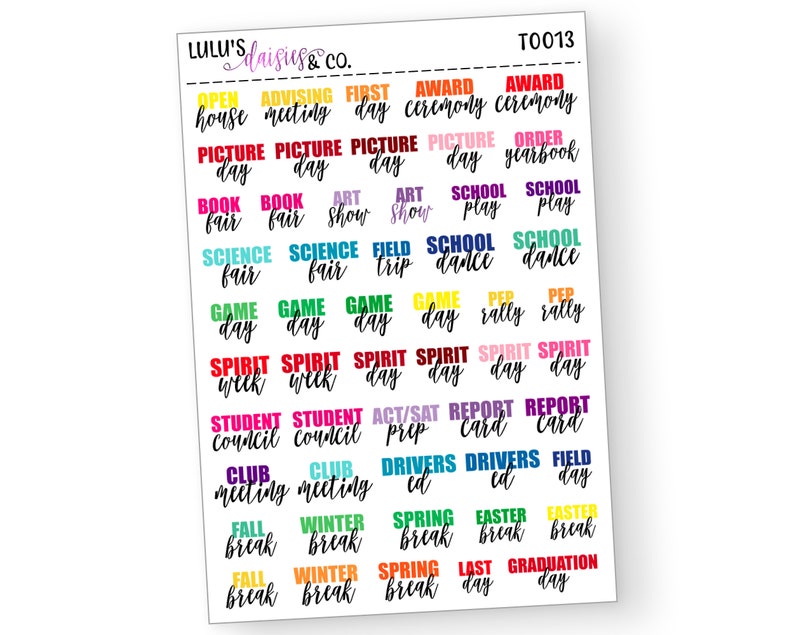 LULU'S daisies & CO. T0013
OPEN house ADVISING meeting FIRST day AWARD ceremony AWARD ceremony
PICTURE day PICTURE day PICTURE day PICTURE day ORDER yearbook
BOOK fair BOOK fair ART show ART show SCHOOL play SCHOOL play
SCIENCE fair SCIENCE fair FIELD trip SCHOOL dance SCHOOL dance
GAME day GAME day GAME day GAME day PEP rally PEP rally
SPIRIT week SPIRIT week SPIRIT day SPIRIT day SPIRIT day SPIRIT day
STUDENT council STUDENT council ACT/SAT prep REPORT card REPORT card
CLUB meeting CLUB meeting DRIVERS ed DRIVERS ed FIELD day
FALL break WINTER break SPRING break EASTER break EASTER break
FALL break WINTER break SPRING break LAST day GRADUATION day